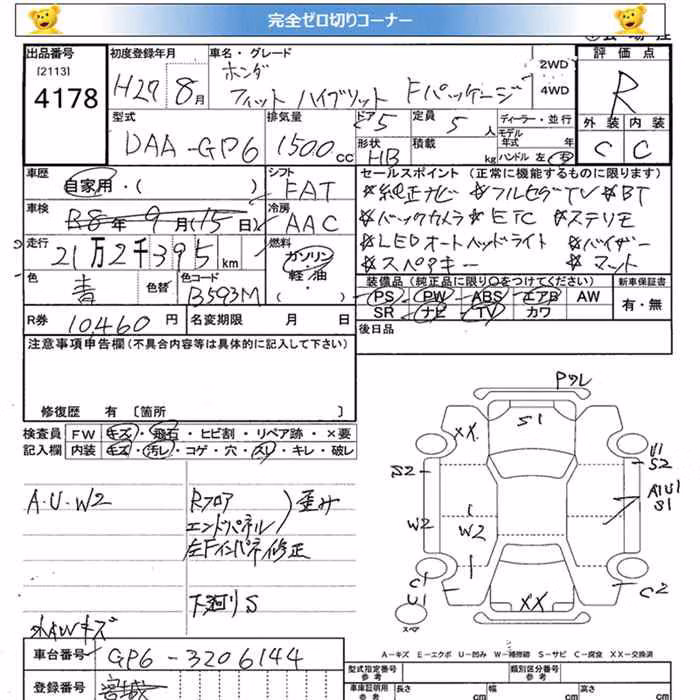 完全ゼロ切りコーナー
出品番号 初度登録年月 車名・グレード 評価点
[2113] ホンダ 2WD
4178 H27 8月 フィット ハイブリット Fパッケージ 4WD R
型式 排気量 ドア 5 定員 5 人 ディーラー・並行 外装 内装
DAA-GP6 1500cc 形状 HB 積載 kg モデル年式 年式 ハンドル 左 右 C C
車歴 シフト セールスポイント(正常に機能するものに限ります)
自家用・( ) FAT ☆純正ナビ ☆フルセグTV ☆BT
車検 冷房 ☆バックカメラ ☆ETC ☆ステリモ
R8年 9月(15日) AAC ☆LEDオートヘッドライト ☆バイザー
走行 燃料 ☆スペアキー ☆マット
21万2千395km ガソリン
色 色替 色コード 軽・油 装備品(純正品に限り○をつけてください) 新車保証書
青 B593M ( ) PS PW ABS エアB AW 有・無
R券 10,460円 名変期限 月 日 SR ナビ TV カワ
注意事項申告欄(不具合内容等は具体的に記入して下さい) 後日品
修復歴 有 [箇所 ]
検査員 FW キズ・飛石・ヒビ割・リペア跡・×要
記入欄 内装 キズ・汚レ・コゲ・穴・スレ・キレ・破レ
A・U・W2
Rフロア
エンドパネル
)歪み
左Fインパネ修正
下廻りS
外AWキズ
Pワレ
XX
S1
U1
S2
S2
AU1
S1
W2
W2
C1
U1
C2
XX
スペア
A−キズ E−エクボ U−凹み W−補修跡 S−サビ C−腐食 XX−交換済
車台番号 GP6-3206144
登録番号 宮城
型式指定番号 参考 類別区分番号 参考
車庫証明用 参考 長さ cm 幅 cm 高さ cm